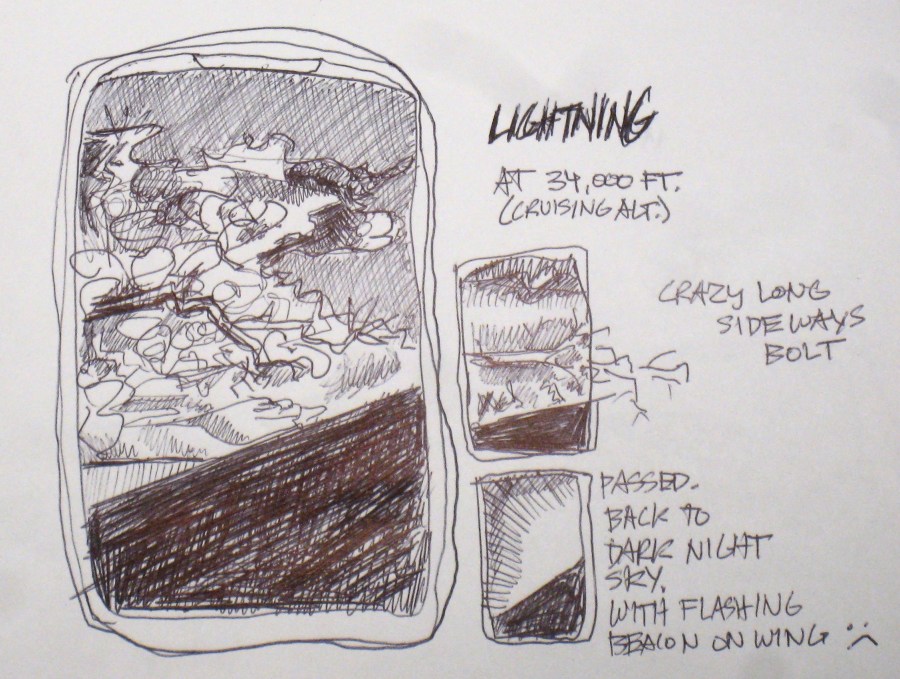 LIGHTNING
AT 34,000 FT.
(CRUISING ALT.)
CRAZY LONG
SIDEWAYS
BOLT
PASSED.
BACK TO
DARK NIGHT
SKY.
WITH FLASHING
BEACON ON WING :(